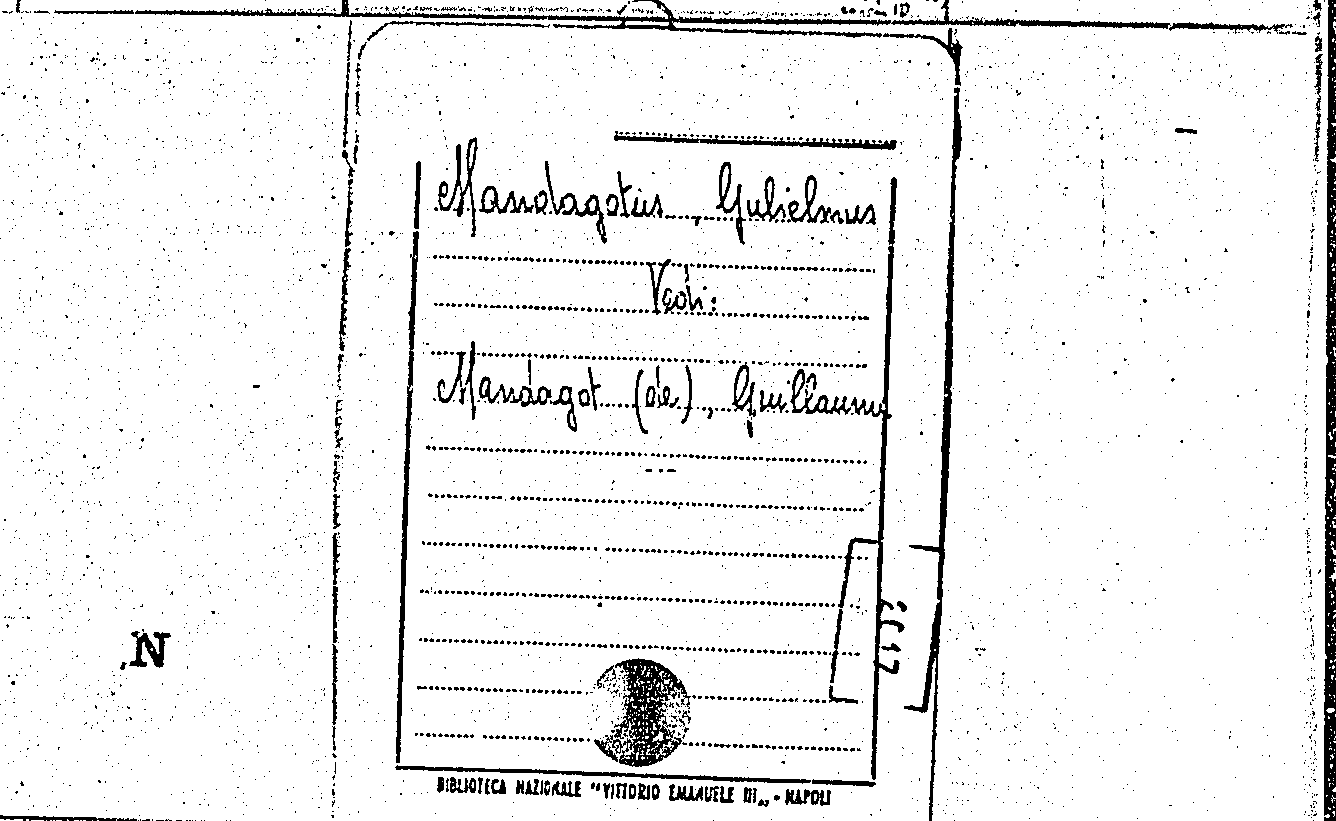 Mandagotus, Gulielmus
Vedi:
Mandagot (de), Guillaume
---
N
BIBLIOTECA NAZIONALE "VITTORIO EMANUELE III„ - NAPOLI